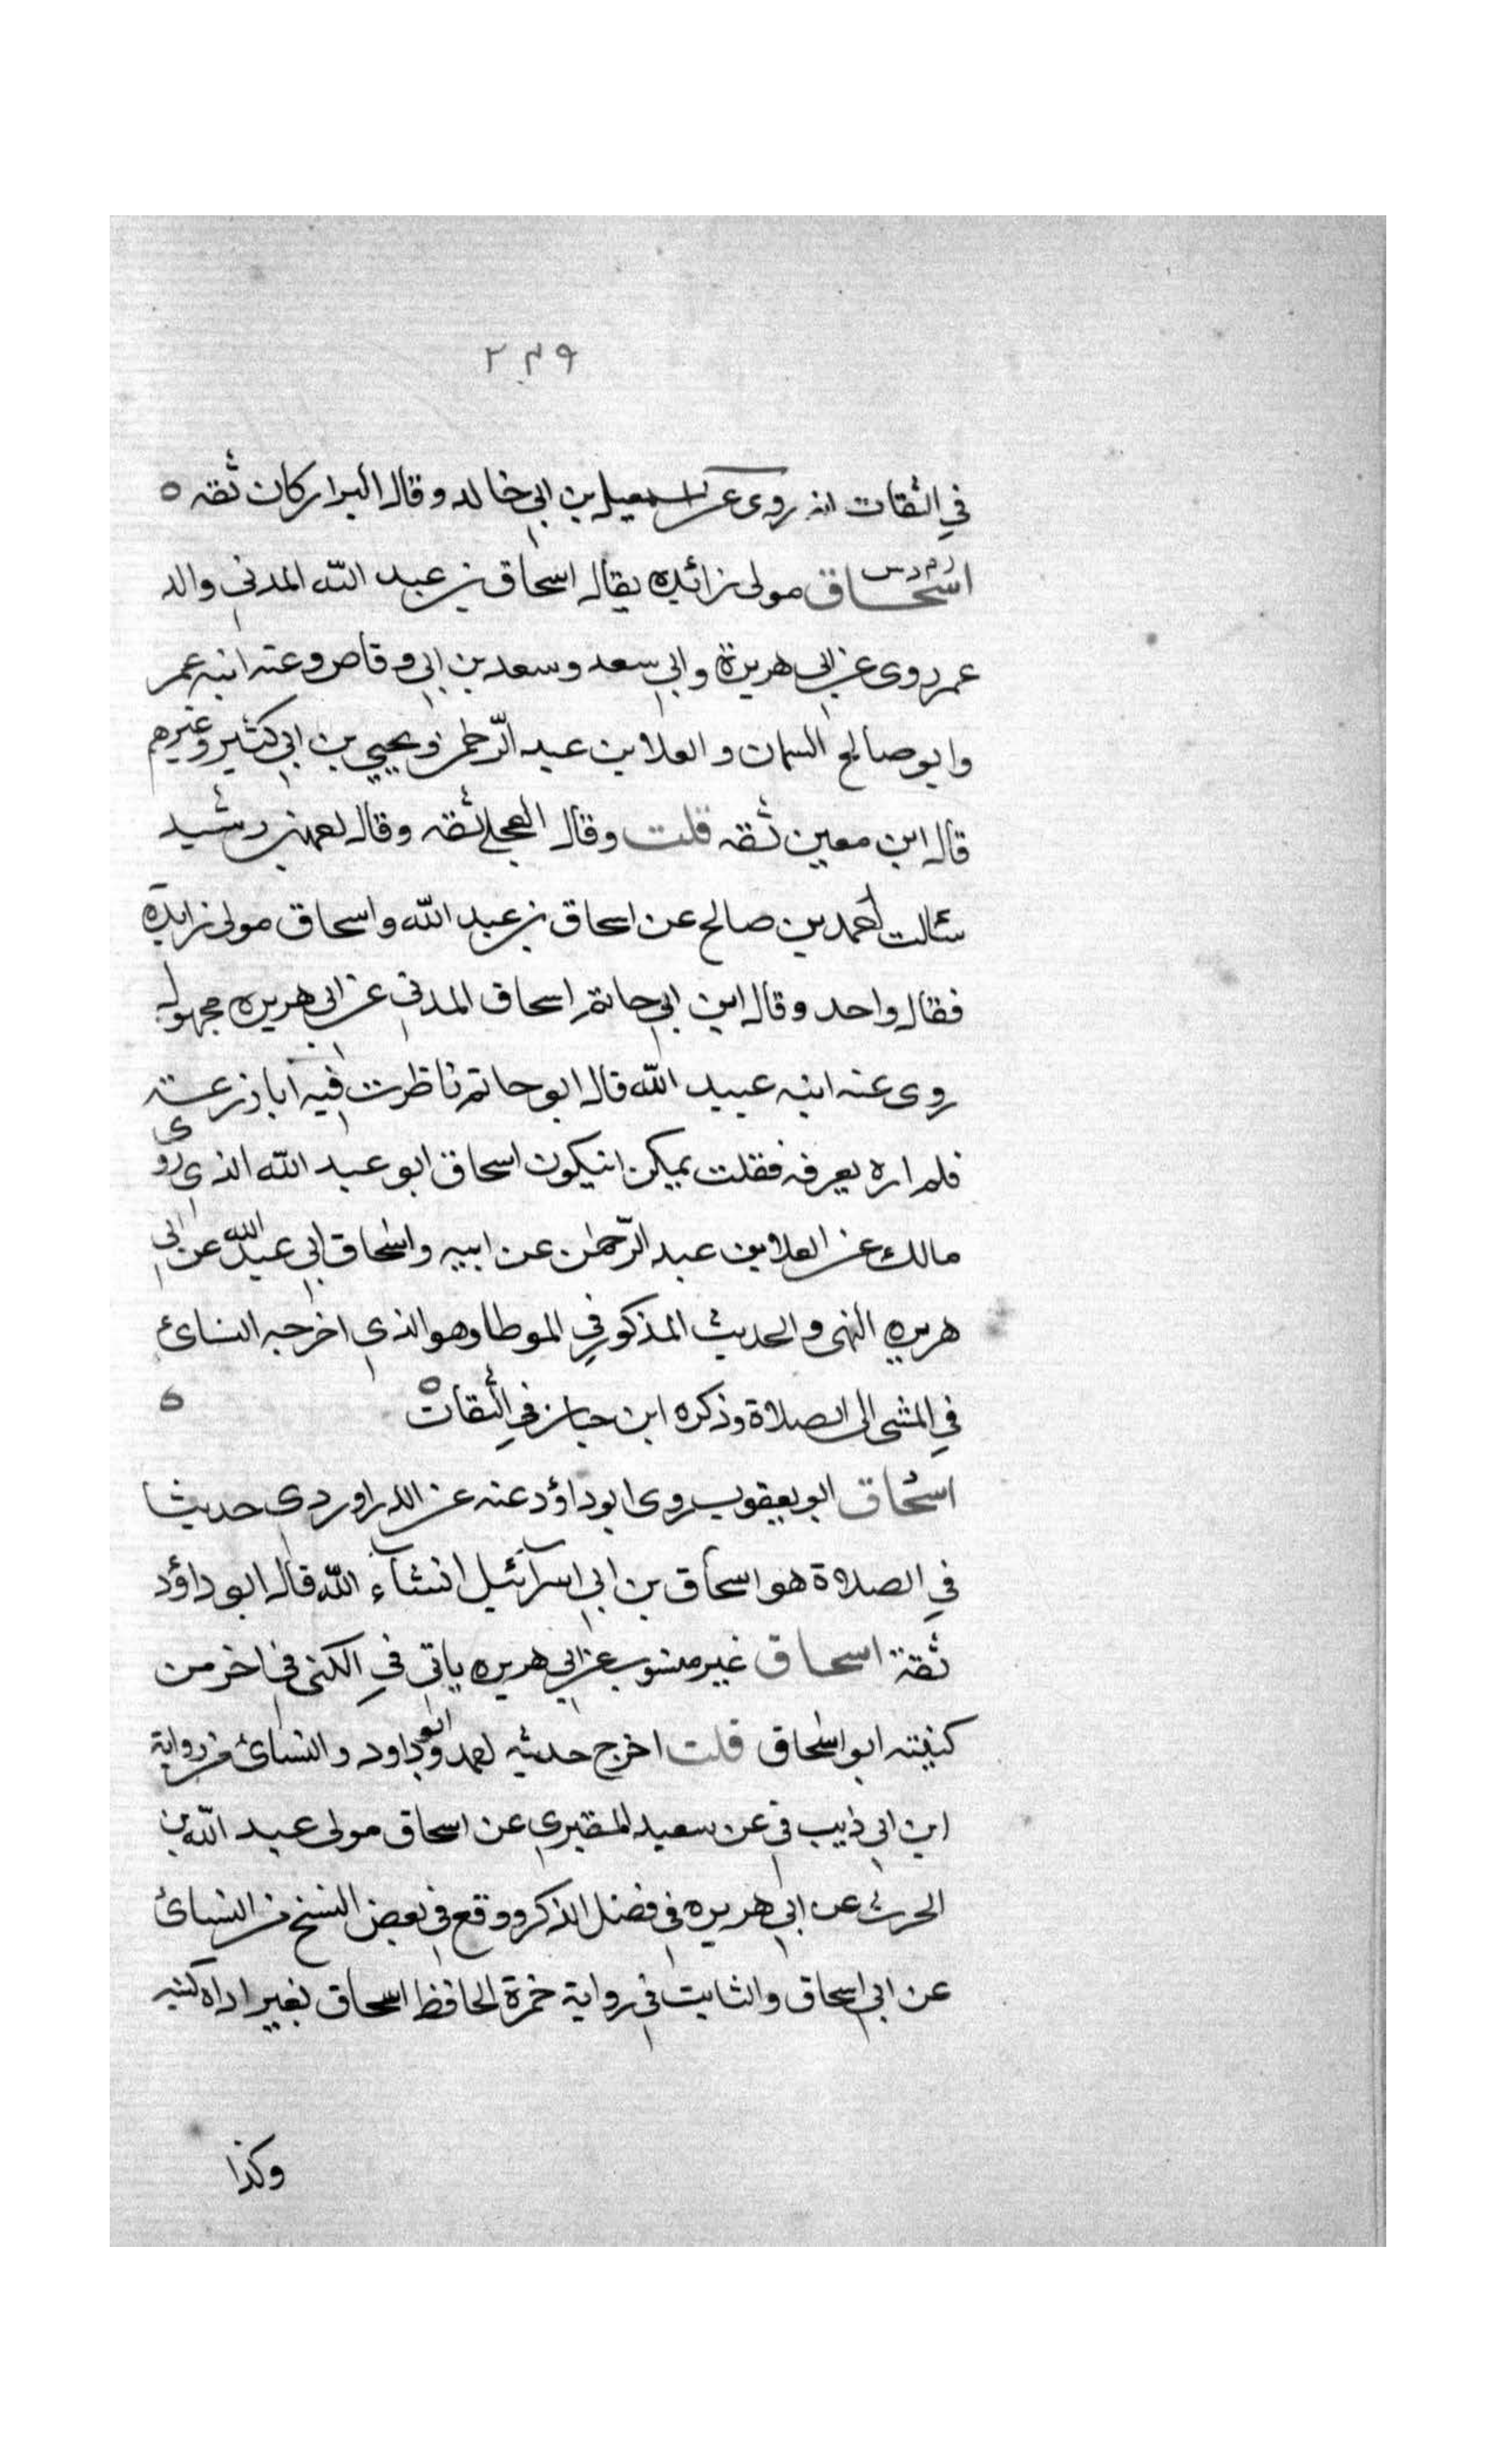 ٢٣٩
في الثقات انه روى عن اسمعيل بن ابي خالد وقال البزار كان ثقه ه
ر م د س
اسحاق مولى زائده يقال اسحاق بن عبد الله المدني والد
عمر روى عن ابي هريرة وابي سعد وسعد بن ابي وقاص وعنه ابنه عمر
وابو صالح السمان والعلا بن عبد الرّحمن ويحيي بن ابي كثير وغيرهم
قال ابن معين ثقه قلت وقال العجلي ثقه وقال احمد بن رشيد
سئالت احمد بن صالح عن اسحاق بن عبد الله واسحاق مولى زايدة
فقال واحد وقال ابن ابي حاتم اسحاق المدني عن ابي هريره مجهول
روى عنه ابنه عبيد الله قال ابو حاتم ناظرت فيه ابا زرعة
فلم اره يعرفه فقلت يمكن انيكون اسحاق ابو عبد الله الذي روى
مالك عن العلا بن عبد الرّحمن عن ابيه واسحاق ابي عبد الله عن ابي
هريره انتهى والحديث المذكور في الموطا وهو الذي اخرجه النسائ
في المشى الى الصلاة وذكره ابن حبان في الثقات ه ه
اسحاق ابو يعقوب روى ابو داؤد عنه عن الدراوردي حديثا
في الصلاة هو اسحاق بن ابي اسرآئيل انشآء الله قال ابو داؤد
ثقة اسحاق غير منسوب عن ابي هريره ياتي في الكنى في اخر من
كنيته ابو اسحاق قلت اخرج حديثه احمد وابو داود والنسائ من رواية
ابن ابي ذيب في عن سعيد المقبري عن اسحاق مولى عبد الله بن
الحرث عن ابي هريره في فضل الذكر ووقع في بعض النسخ من النسائ
عن ابي اسحاق والثابت في رواية حمزة الحافظ اسحاق بغير اداه كنيه
وكذا